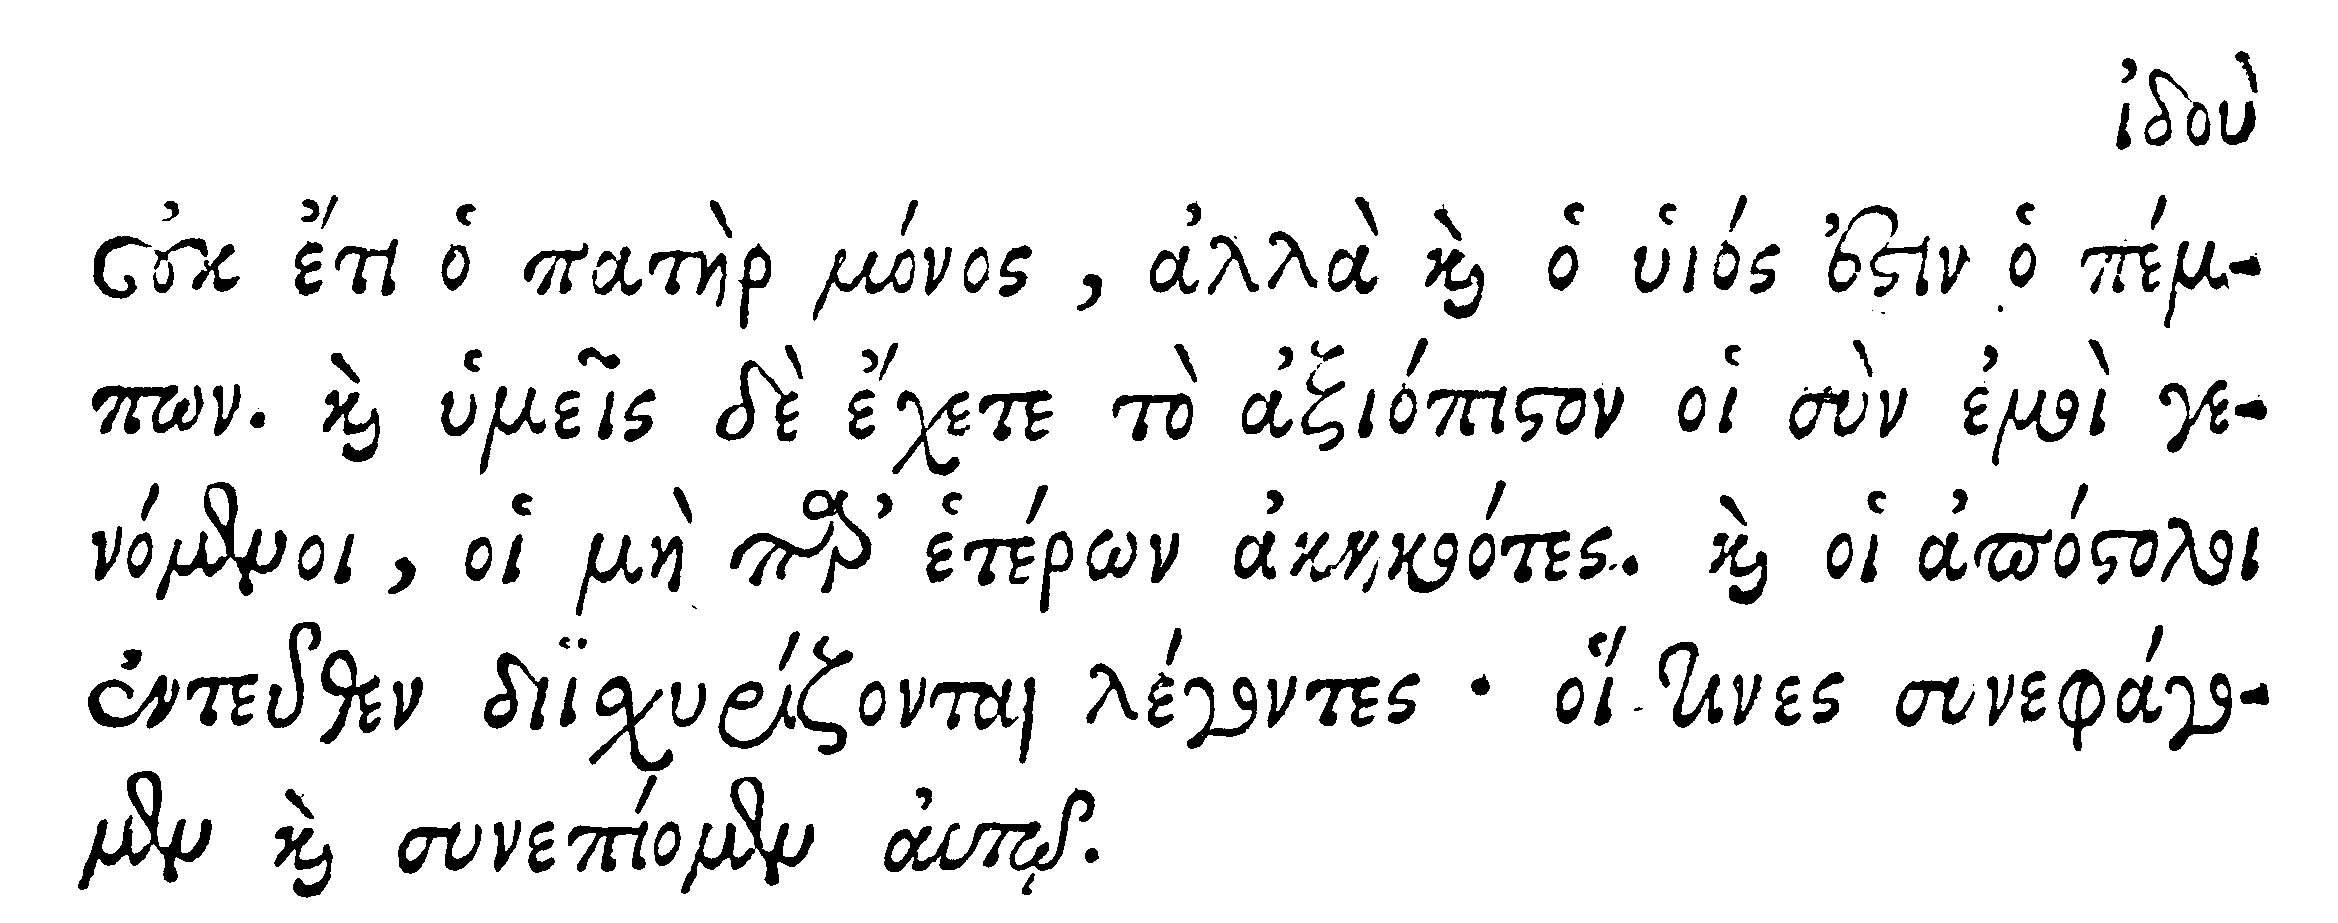 ἰδοὺ
οὐκ ἔτι ὁ πατὴρ μόνος, ἀλλὰ καὶ ὁ υἱός ἐστιν ὁ πέμ-
πων. καὶ ὑμεῖς δὲ ἔχετε τὸ ἀξιόπιστον οἱ σὺν ἐμοὶ γε-
νόμενοι, οἱ μὴ παρ’ ἑτέρων ἀκηκοότες. καὶ οἱ ἀπόστολοι
ἐντεῦθεν διϊσχυρίζονται λέγοντες · οἵ τινες συνεφάγο-
μεν καὶ συνεπίομεν ἀυτῷ.